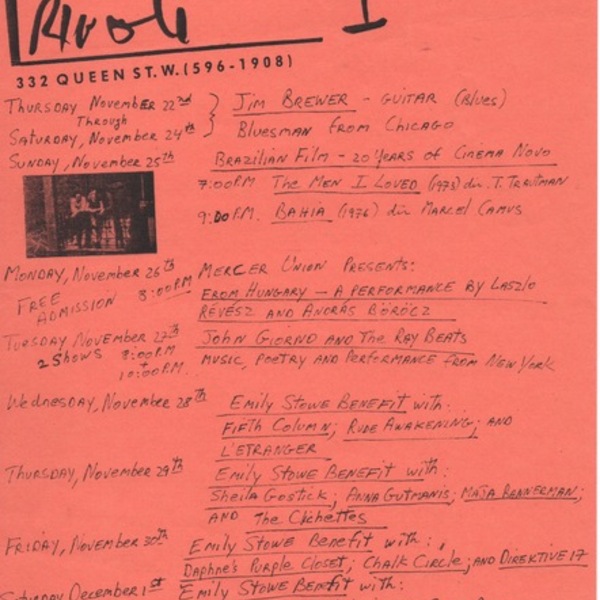 Rivoli
332 QUEEN ST. W. (596-1908)
THURSDAY NOVEMBER 22nd } JIM BREWER - GUITAR (BLUES)
Through
SATURDAY, NOVEMBER 24th BLUESMAN FROM CHICAGO
SUNDAY, NOVEMBER 25th BRAZILIAN FILM - 20 YEARS OF CINEMA NOVO
7:00 P.M THE MEN I LOVED (1973) dir. T. TRAUTMAN
9:00 P.M. BAHIA (1976) dir MARCEL CAMUS
MONDAY, NOVEMBER 26th MERCER UNION PRESENTS:
FREE ADMISSION 8:00 PM FROM HUNGARY - A PERFORMANCE BY LASZLO
RÉVÉSZ AND ANDRÁS BÖRÖCZ
TUESDAY NOVEMBER 27th JOHN GIORNO AND THE RAY BEATS
2 SHOWS 8:00 P.M MUSIC, POETRY AND PERFORMANCE FROM NEW YORK
10:00 P.M.
WEDNESDAY, NOVEMBER 28th EMILY STOWE BENEFIT with:
FIFTH COLUMN; RUDE AWAKENING; AND
L'ETRANGER
THURSDAY, NOVEMBER 29th EMILY STOWE BENEFIT with:
SHEILA GOSTICK; ANNA GUTMANIS; MAJA BANNERMAN;
AND The Clichettes
FRIDAY, NOVEMBER 30th EMILY STOWE BENEFIT with:
DAPHNE'S PURPLE CLOSET; CHALK CIRCLE; AND DIREKTIVE 17
SATURDAY DECEMBER 1st EMILY STOWE BENEFIT with: